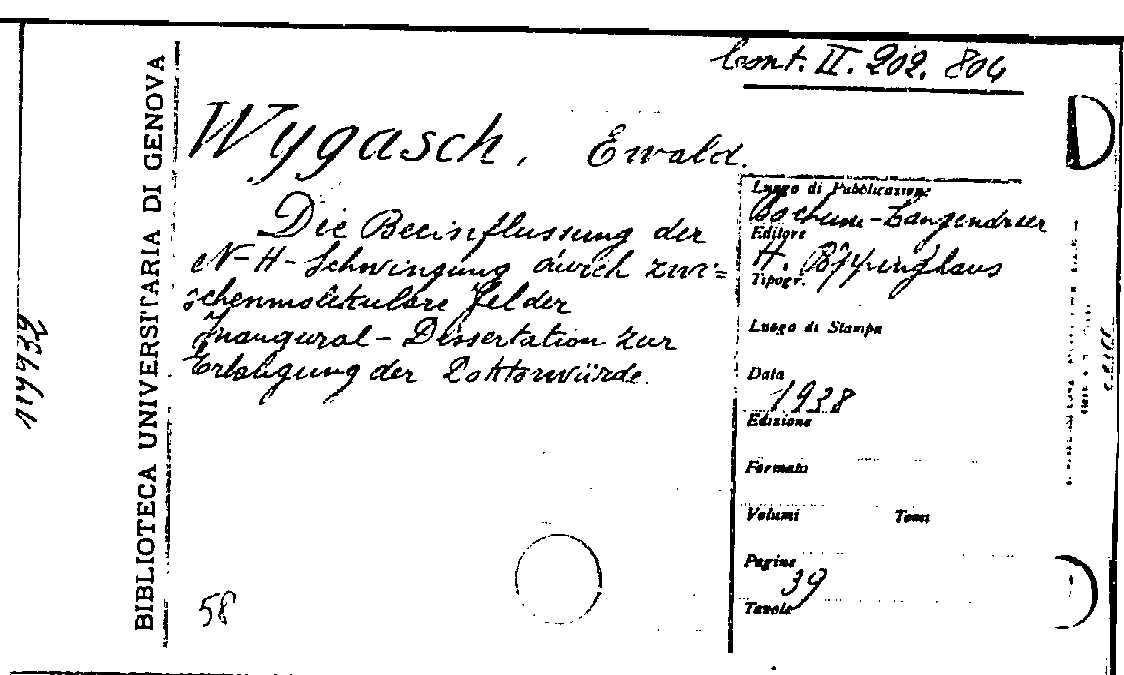 Cont. II. 202. 804
Wygasch, Ewald.
Die Beeinflussung der
N-H-Schwingung durch zwi=
schenmolekulare Felder
Inaugural-Dissertation zur
Erlangung der Doktorwürde.
58
BIBLIOTECA UNIVERSITARIA DI GENOVA
119939
Luogo di Pubblicazione
Bochum-Langendreer
Editore
H. Pöppinghaus
Tipogr.
Luogo di Stampa
Data
1938
Edizione
Formato
Volumi Tomi
Pagine
39
Tavole